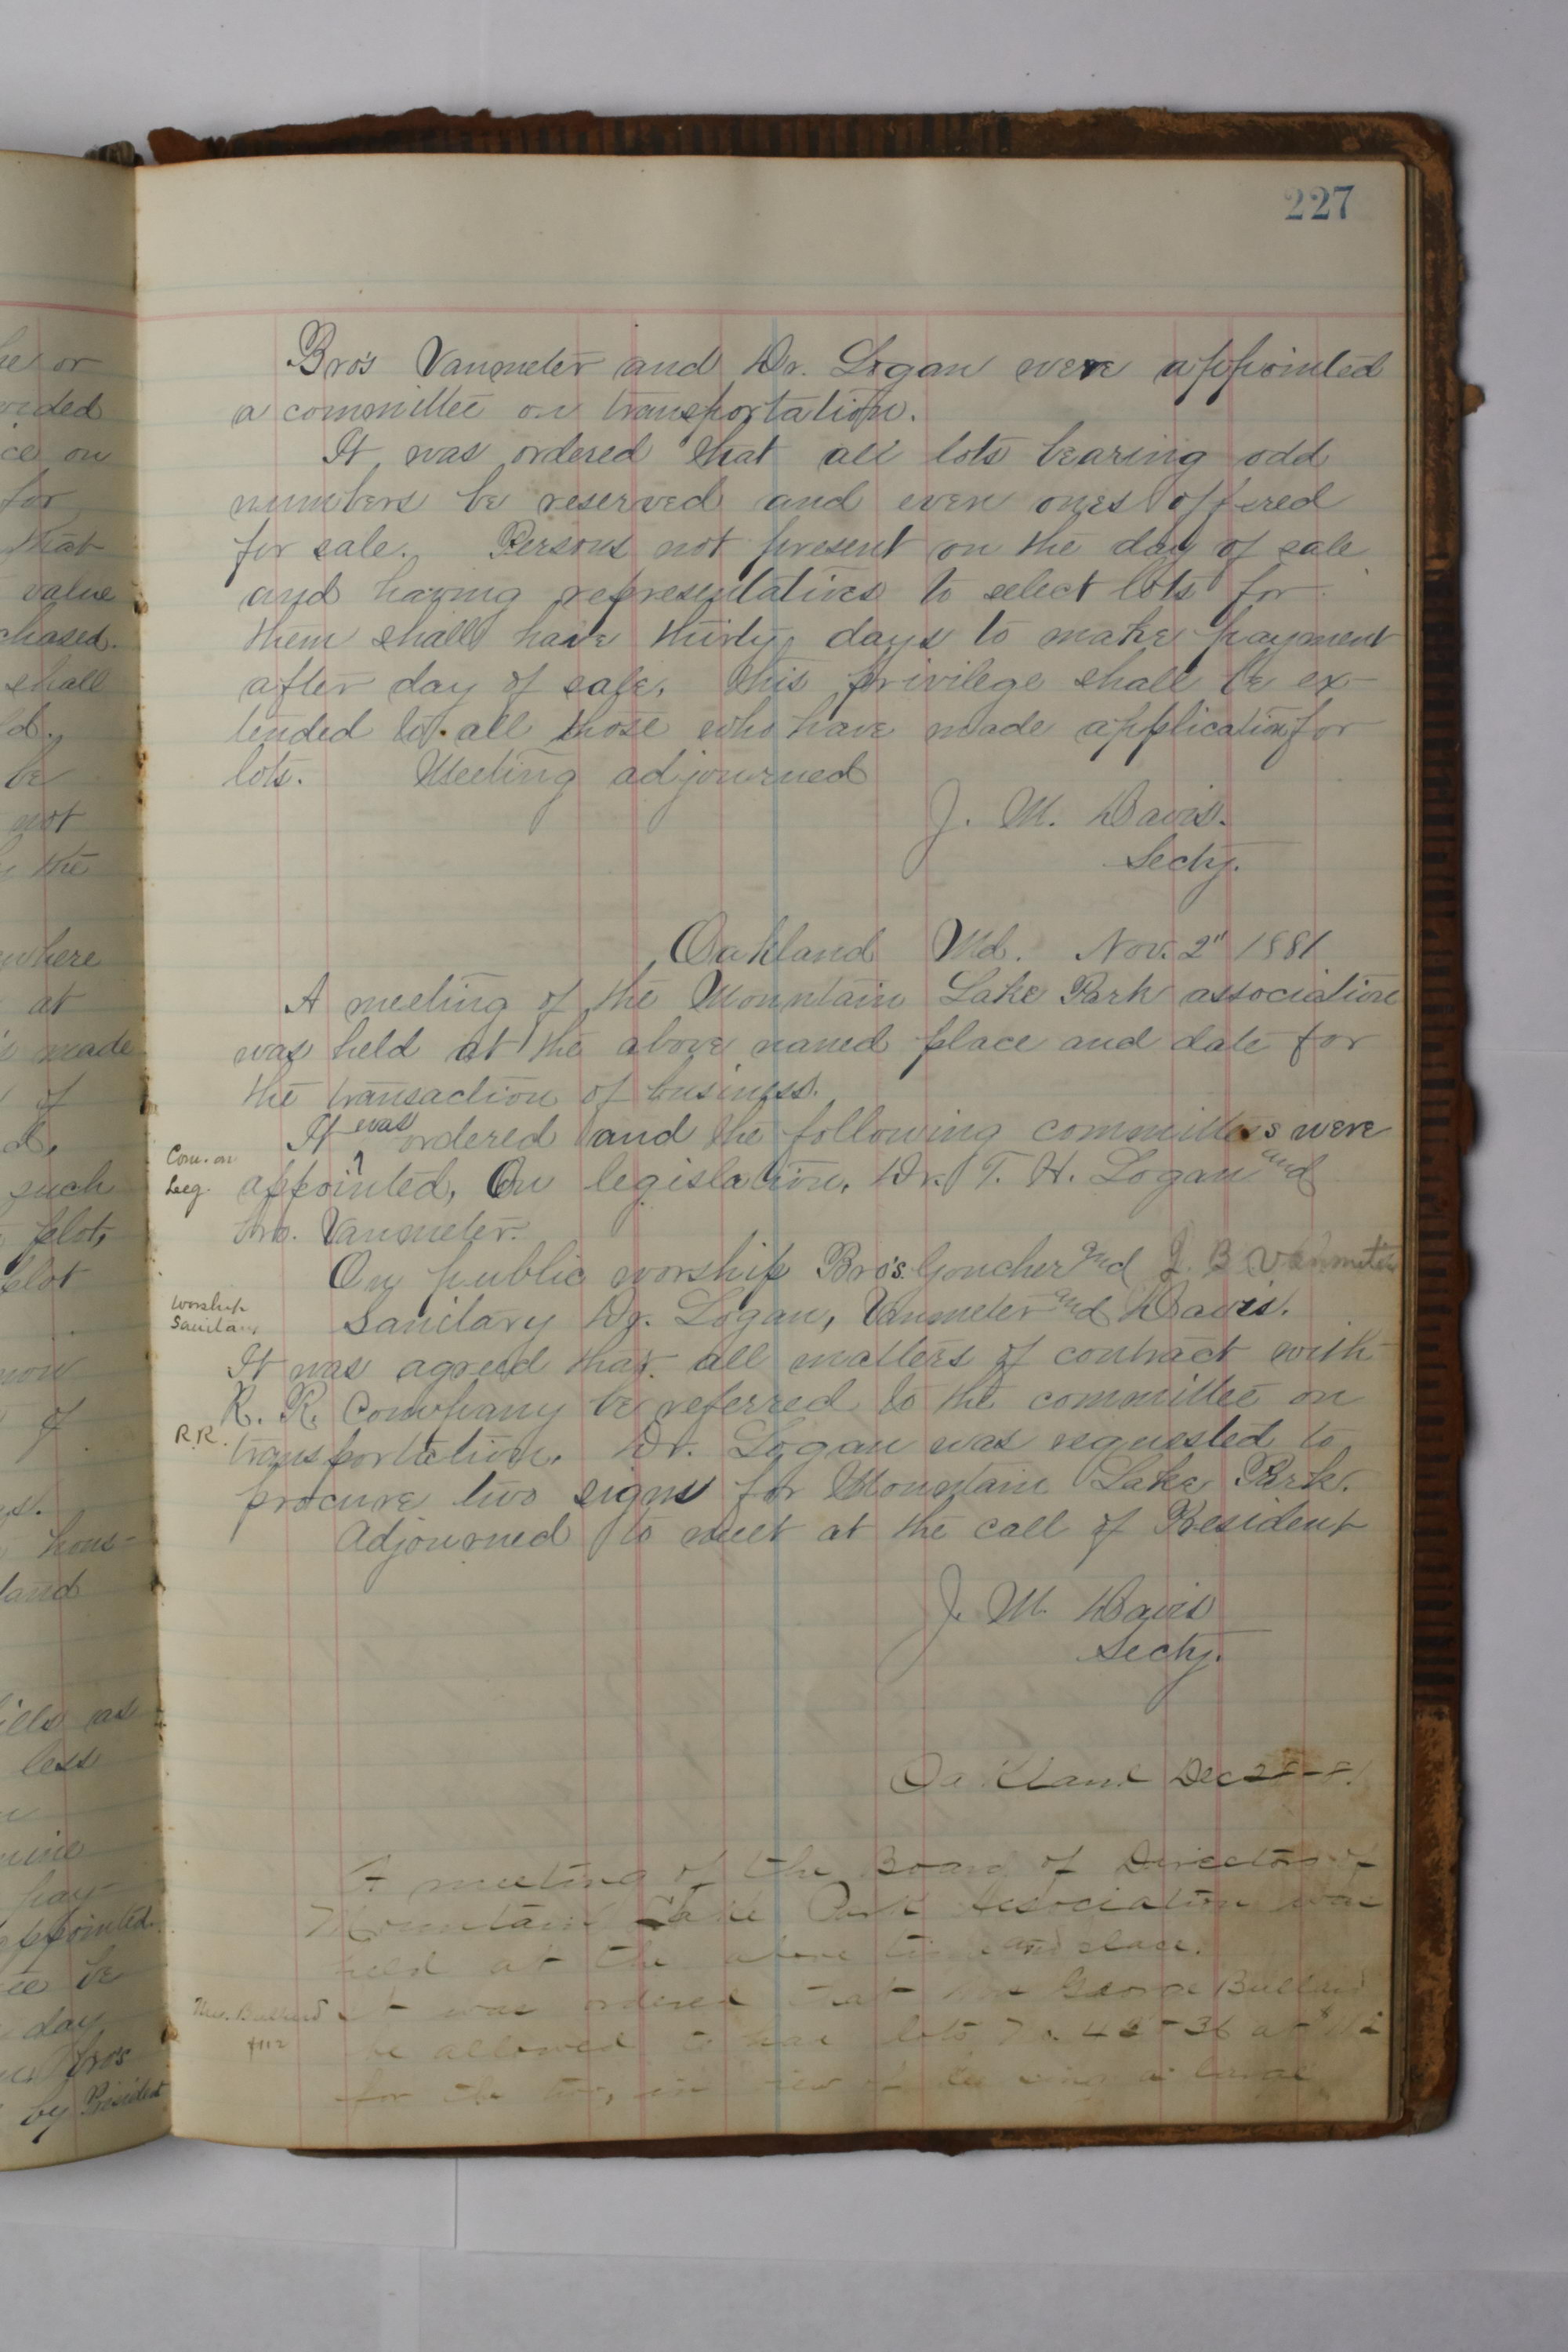 227
Bro's Vanmeter and Dr. Logan were appointed
a committee on transportation.
It was ordered that all lots bearing odd
numbers be reserved and even ones offered
for sale. Persons not present on the day of sale
and having representatives to select lots for
them shall have thirty days to make payment
after day of sale. This privilege shall be ex-
tended to all those who have made application for
lots. Meeting adjourned
J. M. Davis.
Secty.
Oakland Md. Nov. 2" 1881
A meeting of the Mountain Lake Park association
was held at the above named place and date for
the transaction of business.
It was ordered and the following committees were
Com. on
Leg.
appointed, On legislation, Dr. T. H. Logan and
bro. Vanmeter.
On public worship Bro's. Goucher and J. B. Vanmeter
Worship
Sanitary
Sanitary Dr. Logan, Vanmeter and Davis.
It was agreed that all matters of contract with
R. R. Company be referred to the committee on
R.R.
transportation. Dr. Logan was requested to
procure two signs for Mountain Lake Park.
Adjourned to meet at the call of President
J. M. Davis
Secty.
Oakland Dec 28-81
A meeting of the Board of Directors of
Mountain Lake Park Association was
held at the above time and place.
Mrs. Bullard
$112
It was ordered that Mrs George Bullard
be allowed to have lots No. 36 at
for the two, in view of a large
he or
ce on
for
that
value
chased.
shall
ld.
be
not
the
where
at
made
of
such
plot,
plot
now
of
hous-
land
ills as
less
pay
appointed.
be
day
bro's
by President